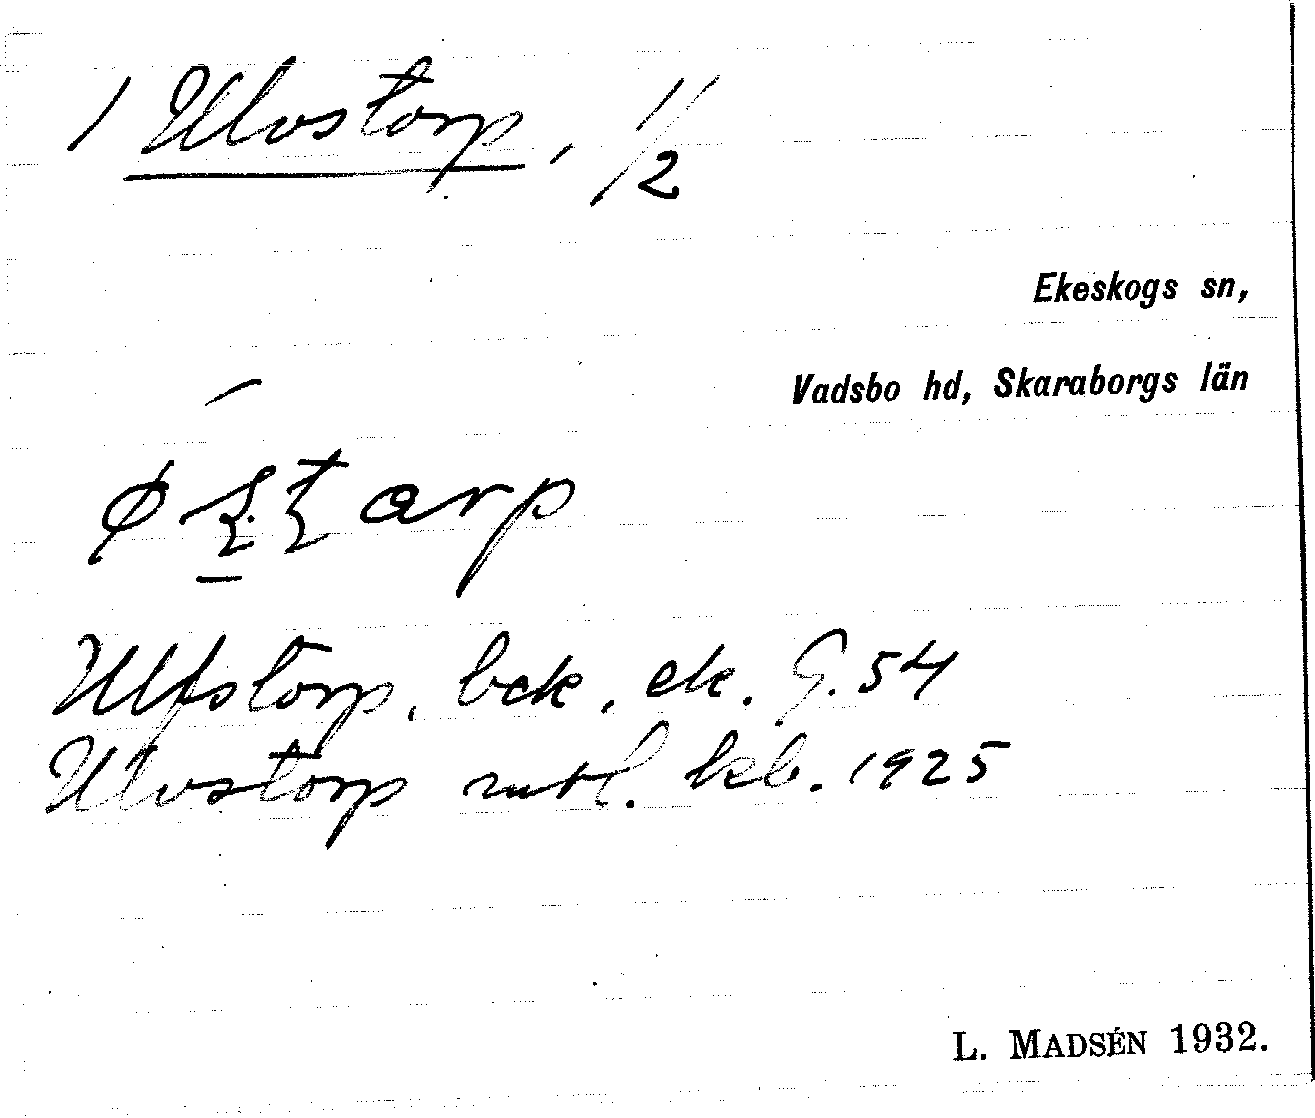 1 Ulvstorp, 1/2
Ekeskogs sn,
Vadsbo hd, Skaraborgs län
Ulfstorp, bek. ek. G. 54
Ulvstorp mtl. kb. 1925
L. MADSÉN 1932.